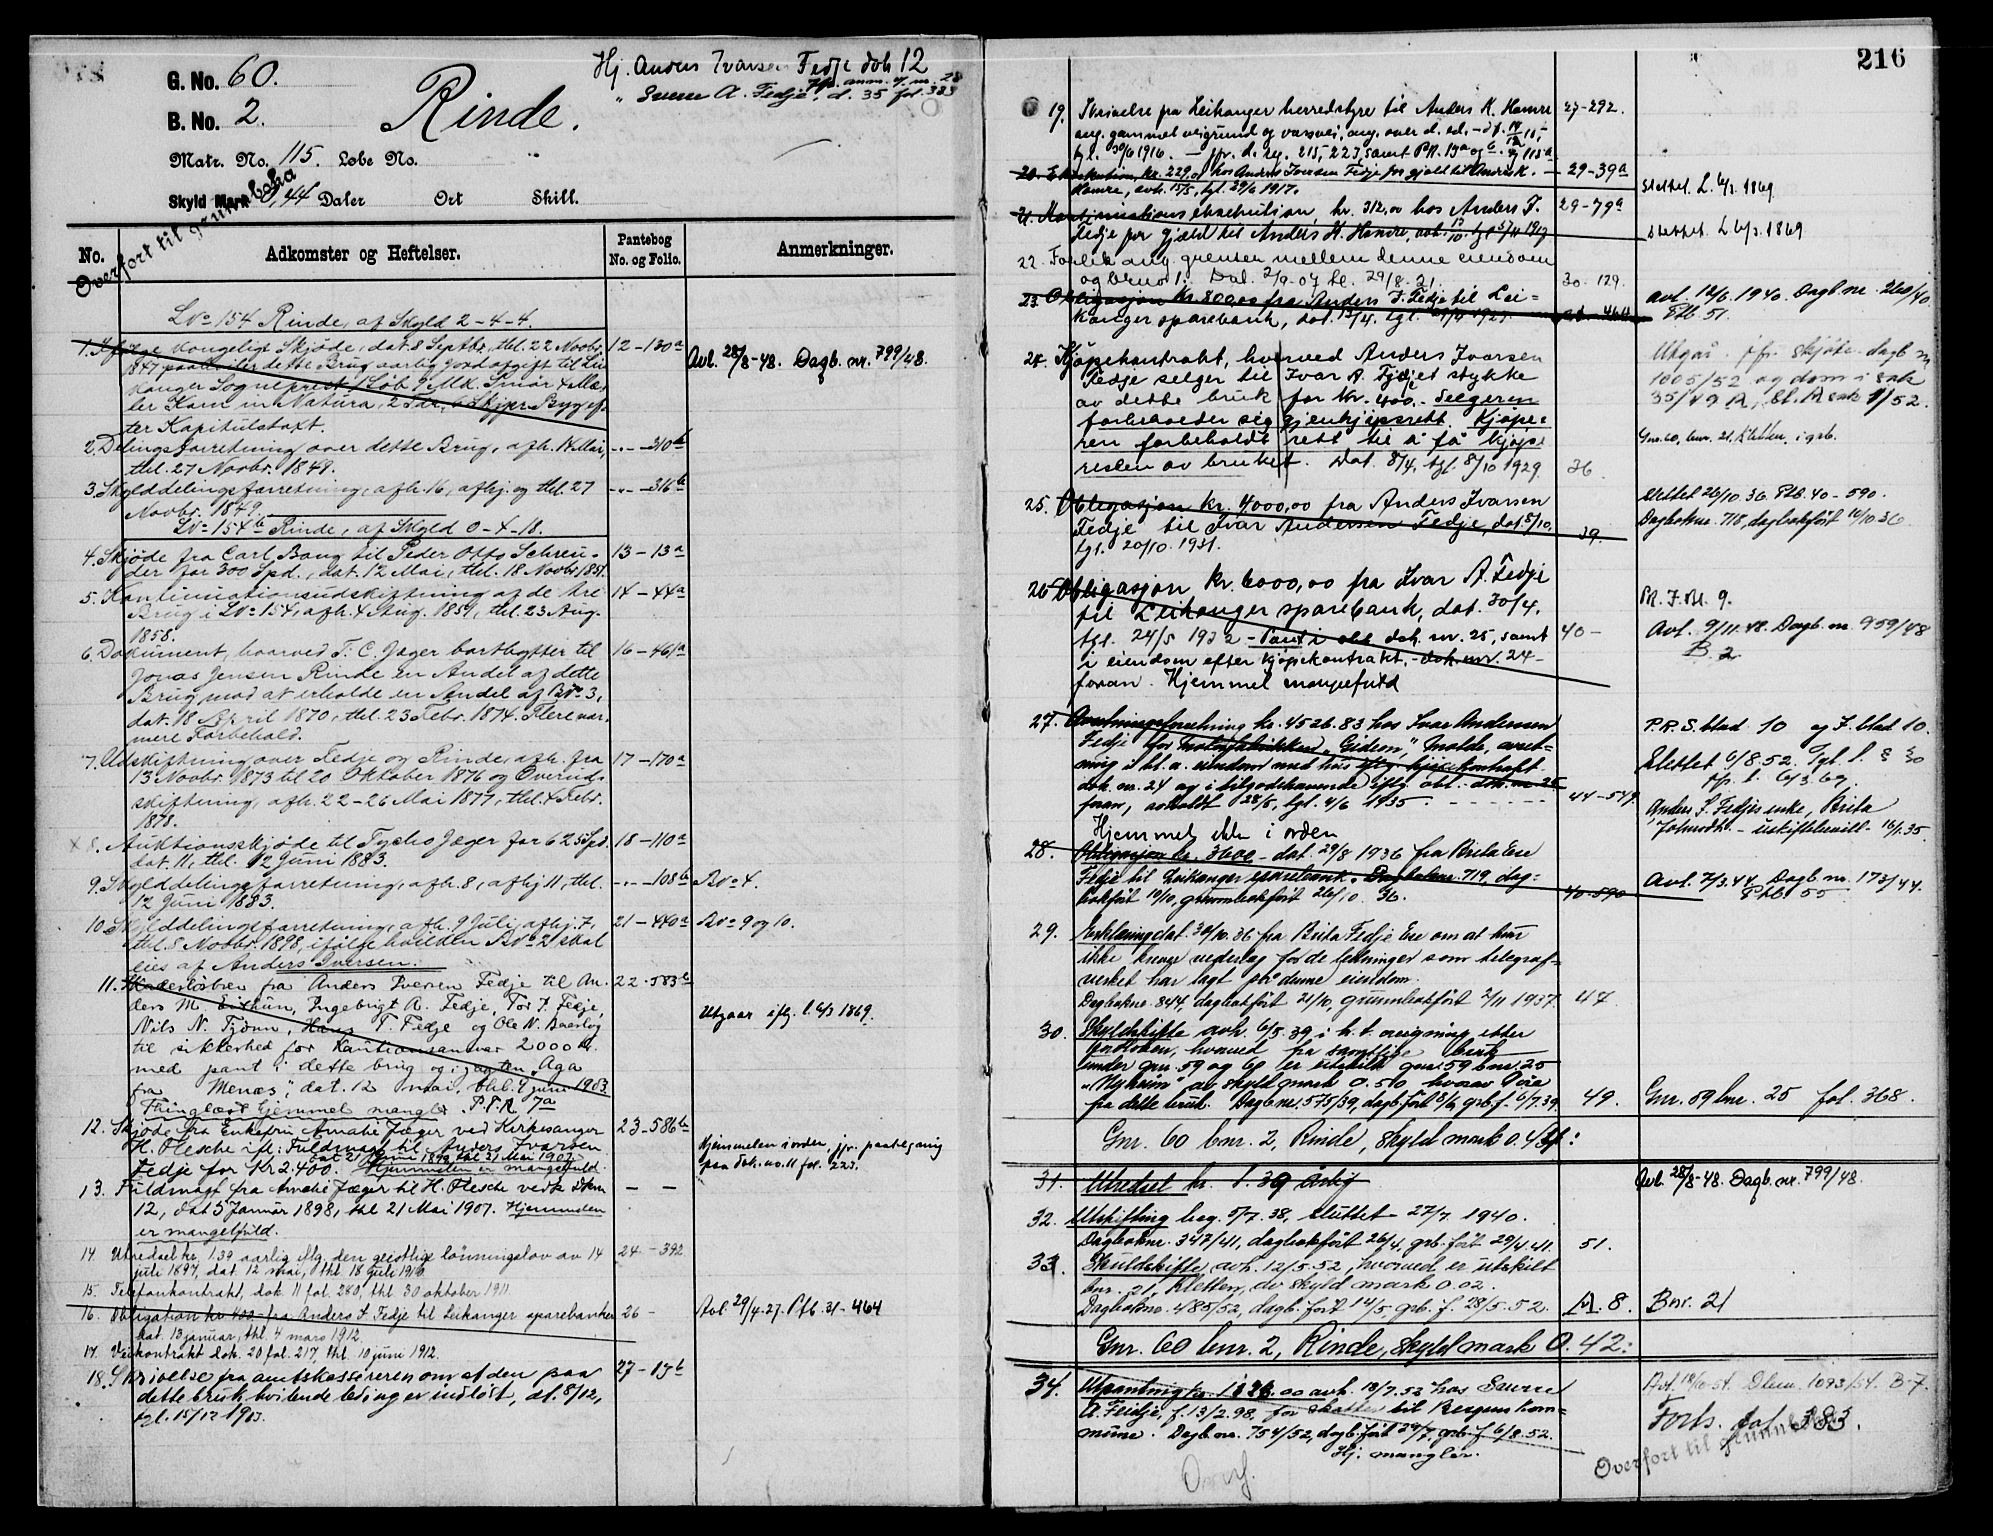 G. No. 60.
B. No. 2.
Rinde.
Hj. Anders Ivarsen Fedje dok 12
" Sverre A. Fedje, d. 35 fol. 383
Matr. No. 115. Løbe No.
Skyld Mark 0,44 Daler Ort Skill.
Overført til grunnboka
No. Adkomster og Heftelser. Pantebog No. og Folio. Anmerkninger.
LNo 154 Rinde, af Skyld 2-4-4.
1. Ifølge Kongeligt Skjøde, dat. 8 Septbr., thl. 22 Novbr. 12-130a
1847 paahviler dette Brug aarlig Jordafgift til Lei-
kanger Sogneprest 1 Løb 9 Mk. Smør 4 Mæ-
ler Korn in Natura, 2 Fdr., 6 Skjpr. Byg ef-
ter Kapitulstaxt.
Avl. 28/8-48. Dagb. nr. 799/48.
2. Delingsforretning over dette Brug, afh. 14 Mai, -"- -310b
thl. 27 Novbr. 1849.
3. Skylddelingsforretning, afh. 16, afhj. og thl. 27 -"- -316b
Novbr. 1849.
LNo 154b Rinde, af Skyld 0-4-18.
4. Skjøde fra Carl Bang til Peder Otto Schreu- 13-13a
der for 300 Spd., dat. 12 Mai, thl. 18 Novbr. 1851.
5. Kontinuationsudskiftning af de tre 14-44a
Brug i LNo 154, afh. 4 Aug. 1851, thl. 23 Aug.
1858.
6. Dokument, hvorved T. C. Jæger bortbytter til 16-461a
Jonas Jensen Rinde en Andel af dette
Brug mod at erholde en Andel af BNo 3,
dat. 18 April 1870, thl. 23 Febr. 1874. Flere nær-
mere Forbehold.
7. Udskiftning over Fedje og Rinde, afh. fra 17-170a
13 Novbr. 1873 til 20 Oktober 1876 og Overud-
skiftning, afh. 22-26 Mai 1877, thl. 4 Febr.
1878.
x 8. Auktionsskjøde til Tycho Jæger for 625 Spd. 18-110a
dat. 11, thl. 12 Juni 1883.
9. Skylddelingsforretning, afh. 8, afhj. 11, thl. -"- -108b BNo 4.
12 Juni 1883.
10. Skylddelingsforretning, afh. 9 Juli, afhj. 7, 21-440a BNo 9 og 10.
thl. 8 Novbr. 1898, ifølge hvilken BNo 2 skal
eies af Anders Iversen.
11. Skadesløsbrev fra Anders Iversen Fedje til An- 22-583b
ders M. Eithun, Ingebrigt A. Fedje, Tor J. Fedje,
Nils N. Tjdun, Hans T. Fedje og Ole N. Baarlog
til sikkerhed for Kautionsansvar 2000 kr.
med pant i dette brug og i jagten "Aga
fra Menæs", dat. 12 mai, thl. 9 juni 1903
Thinglæst Hjemmel mangler. P.P.R. 7a
Utgaar iflg. l. 6/3 1869.
12. Skjøde fra Enkefru Amalie Jæger ved Kirkesanger 23-586b
H. Olesche iflg. Fuldmagt til Anders Ivarsen
dat 21 1898 thl 21 Mai 1907
Fedje for Kr 2.400. Hjemmelen er mangelfuld.
Hjemmelen i orden, jfr. paategning
paa dok. no. 11 fol. 223.
13. Fuldmagt fra Amalie Jæger til H. Olesche vedk Dkm — —
12, dat 5 Januar 1898, thl 21 Mai 1907. Hjemmelen
er mangelfuld.
14. Utredsel kr. 1.39 aarlig iflg. den geistlige lønningslov av 14 24-392
juli 1897, dat. 12 mai, thl. 18 juli 1910
15. Telefonkontrakt, dok. 11 fol. 280, thl. 30 oktober 1911
16. Obligation kr 400- fra Anders I. Fedje til Leikanger sparebanken 26 - Avl 29/4-27. Pfb. 31-464
dat. 13 januar, thl. 4 mars 1912.
17. Veikontrakt dok. 20 fol. 217, thl. 10 juni 1912.
18. Skrivelse fra amtskassereren om at den paa 27-15b
dette bruk hvilende leding er indløst, dt. 8/12,
tgl. 15/12 1913.
216
19. Skrivelse fra Leikanger herredstyre til Anders K. Hamre 27-292.
ang. gammel veigrund og vassvei,
tgl. 30/6 1916. — jfr. d. reg. 215, 223, samt P.R. 13a og 6
20. Eksekution, kr. 229, hos Anders Iversen Fedje for gjæld til Anders K. 29-39a
Hamre, avh. 15/5, tgl. 29/6 1917. slettet. L. 6/3. 1869
21. Kontinuations eksekution, kr. 312,00 hos Anders I. 29-79a
Fedje for gjæld til Anders K. Hamre, avh. 17/10. tgl 5/11 1917 slettet. L 6/3. 1869
22. Forlik ang. grensen mellem denne eiendom
og brno 1. Dat. 2/9-07 tl. 29/8-21. 30-129.
23. Obligasjon kr. 800,00 fra Anders I. Fedje til Lei-
kanger sparebank, dat. 12/4. tgl. 1927 31-464
avl. 12/6. 1940. Dagb. nr. 260/40.
Ptb 51.
24. Kjøpekontrakt, hvorved Anders Ivarsen
Fedje selger til Ivar A. Fedje et stykke
av dette bruk for kr. 400,- Selgeren
forbeholder sig gjenkjøpsrett. Kjøpe-
ren forbeholdt rett til å få kjøpe
resten av bruket. Dat. 8/4, tgl. 8/10 1929. 36.
Utgår jfr. skjøte dagb nr
1005/52 og dom i sak
35/49 A, bl. A sak 1/52.
Gnr. 60, bnr. 21, Kletten, i grb.
25. Obligasjon kr. 4000,00 fra Anders Ivarsen
Fedje til Ivar Andersen Fedje, dat. 5/10,
tgl. 20/10. 1931. 39.
Slettet 26/10. 36. Ptb. 40-590.
Dagbokno. 718, dagbokført 10/10 36
26. Obligasjon kr. 6000,00 fra Ivar A. Fedje
til Leikanger sparebank, dat. 30/4.
tgl. 24/5 1932 - Pant i obl dok. nr. 25, samt 40-
i eiendom efter kjøpekontrakt, - dok. nr. 24-
foran. Hjemmel mangelfuld
M. J. bl. 9.
Avl. 9/11. 48. Dagb. nr. 959/48
B. 2
27. Avsetningsforretning kr. 4526.83 hos Ivar Andersen
Fedje for Motorfabrikken "Gideon", Molde, avset-
ning i bl. a. eiendom med hus iflg. kjøpekontrakt
dok. nr. 24 og i tilgodehavende iflg. obl. - dok. nr 25
foran, avholdt 28/5, tgl. 4/6 1935 44-549
Hjemmel ikke i orden
P.R.S. blad 10 og J. blad 10.
Slettet 6/8. 52. Tgl. l. § 30
jfr. l. 6/3 69.
Anders I. Fedjes enke, Brita
Johnsdtr. - uskiftebevill. 16/1. 35.
28. Obligasjon kr. 3600 - dat. 29/8 1936 fra Brita Ese
Fedje til Leikanger sparebank. Dagbokno. 719, dag-
bokført 10/10, grunnbokført 26/10 36. 40-590
Avl. 7/3. 44. Dagb. nr. 173/44.
Ptb. 55
29. Erklæring dat. 30/10. 36 fra Brita Fedje Ese om at hun
ikke krever vederlag for de ledninger som telegraf-
verket har lagt på denne eiendom.
Dagbokno. 844, dagbokført 21/10, grunnbokført 2/11 1937. 47.
30. Skyldskifte avh. 6/5. 39. i h. t. avigning etter
jordloven, hvorved fra samtlige bruk
under gnr. 59 og 60 er utskilt gnr. 59 bnr. 25
"Nyheim" av skyld mark 0.50 hvorav 0.02
fra dette bruk. Dagb. nr. 575/39, dagb. ført 5/6, grb. f. 6/7. 39. 49. Gnr. 59 bnr. 25 fol. 368.
Gnr. 60 bnr. 2, Rinde, skyld mark 0.44:
31. Utredsel kr. 1.39 årlig Avl. 28/8-48. Dagb. nr. 799/48.
32. Utskifting beg. 5/7. 38, sluttet 27/7 1940.
Dagbokno. 347/41, dagbokført 26/4, grb. ført 29/4. 41. 51.
33. Skyldskifte, avh. 12/5. 52, hvorved er utskilt
bnr. 21, Kletten, av skyld mark 0.02.
Dagbokno. 485/52, dagb. ført 14/5, grb. f. 28/5. 52. A. 8. Bnr. 21
Gnr. 60 bnr. 2, Rinde, skyld mark 0.42:
34. Utpanting kr. 1826.00 avh. 18/7. 52 hos Sverre
A. Feidje, f. 13/2. 98, for skatter til Bergens kom-
mune. Dagb. nr. 754/52, dagb. ført 29/7, grb. f. 6/8. 52.
Hj. mangler.
Avl. 19/10-54. Dbnr. 1093/54. B-7.
Forts. fol. 383.
Overført til grunnboka
Overf.